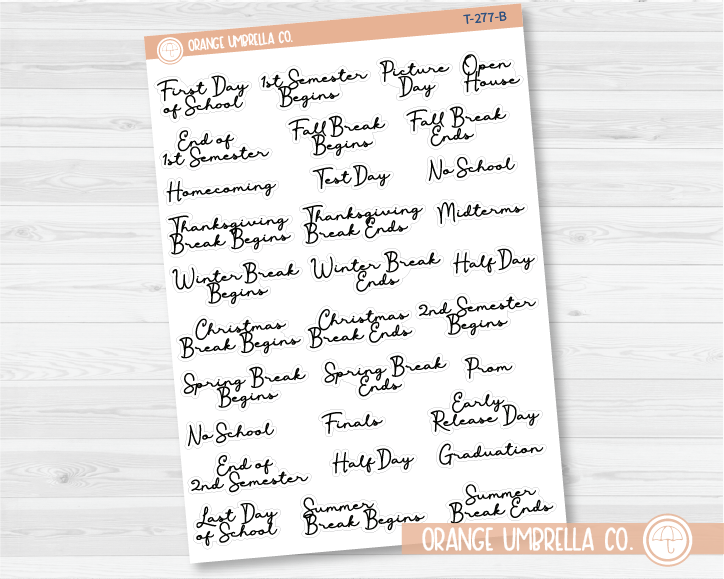 T-277-B
ORANGE UMBRELLA CO.
First Day
of School
1st Semester
Begins
Picture
Day
Open
House
End of
1st Semester
Fall Break
Begins
Fall Break
Ends
Homecoming
Test Day
No School
Thanksgiving
Break Begins
Thanksgiving
Break Ends
Midterms
Winter Break
Begins
Winter Break
Ends
Half Day
Christmas
Break Begins
Christmas
Break Ends
2nd Semester
Begins
Spring Break
Begins
Spring Break
Ends
Prom
No School
Finals
Early
Release Day
End of
2nd Semester
Half Day
Graduation
Last Day
of School
Summer
Break Begins
Summer
Break Ends
ORANGE UMBRELLA CO.